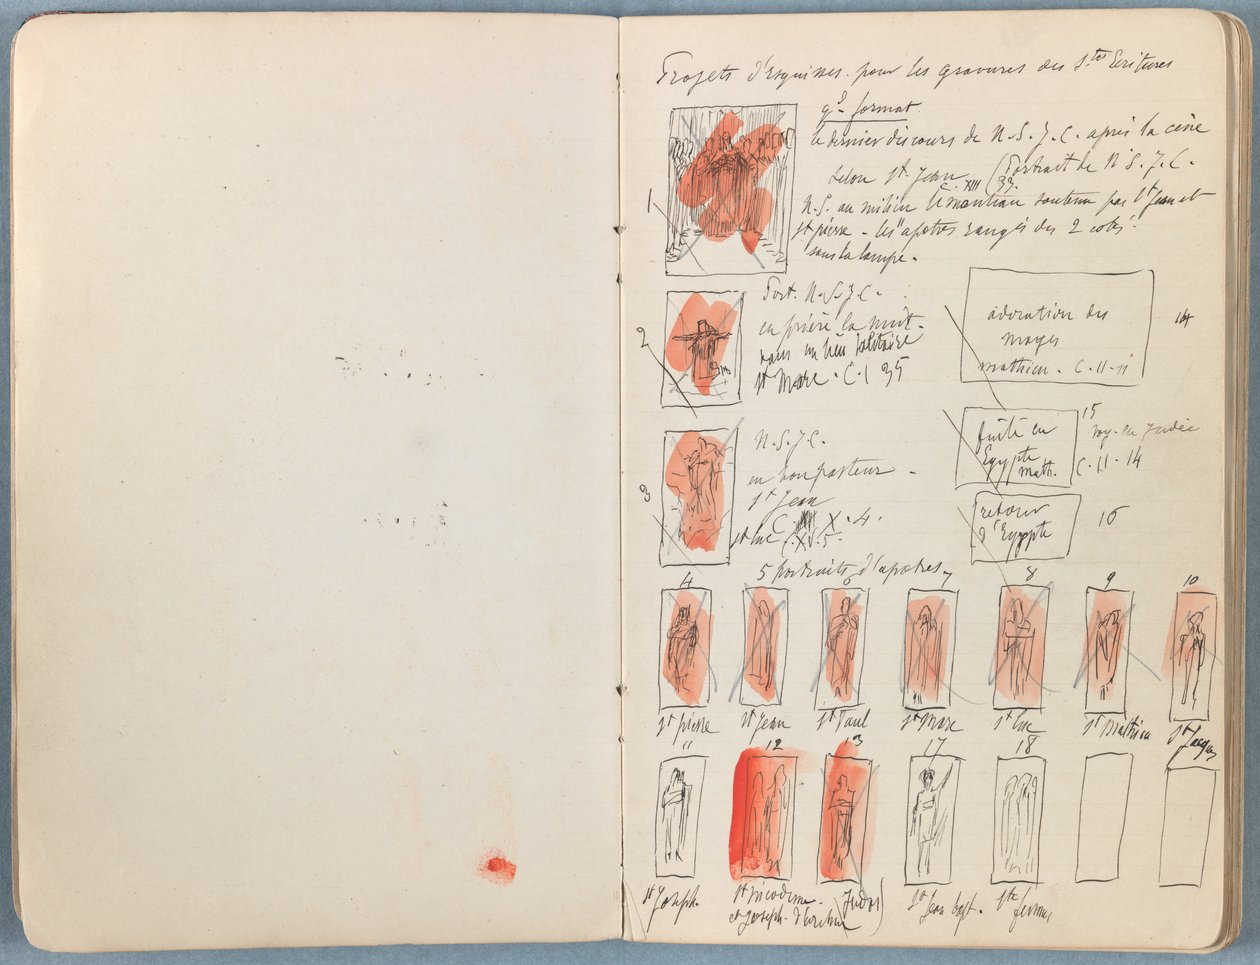 Projets d'Esquisses. pour les gravures des Stes Ecritures
gd format.
1
le dernier discours de N.S.J.C. après la cène
selon St Jean C. XIII 33. (Portrait de N.S.J.C.
N.S. au milieu soutenu par St Jean et
St pierre - les apotres rangés des 2 cotés.
sous la lampe.
2
Port. N.S.J.C.
en prière la nuit.
dans un lieu solitaire
St Marc. C. I 35
3
N.S.J.C.
en bon pasteur -
St Jean
C. X. 4.
St Luc C. XV. 5.
adoration des
mages
mathieu. C. II-11
14
fuite en
Egypte
math. C. II-14
15
en Judée
retour
d'Egypte
16
5 portraits d'apotres
4 6 8 9 10
St pierre St Jean St Paul St Marc St Luc St Mathieu St Jacques
11 12 13 17 18
St Joseph St Nicodeme. Judas St Jean Bapt. Stes femmes
et Joseph d'Arimathie